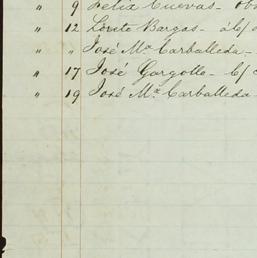 " 9 Felix Cuevas -
" 12 Loreto Bargas - á l/c
" " José Mª Carballeda -
" 17 José Gargollo - l/c
" 19 José Mª Carballeda